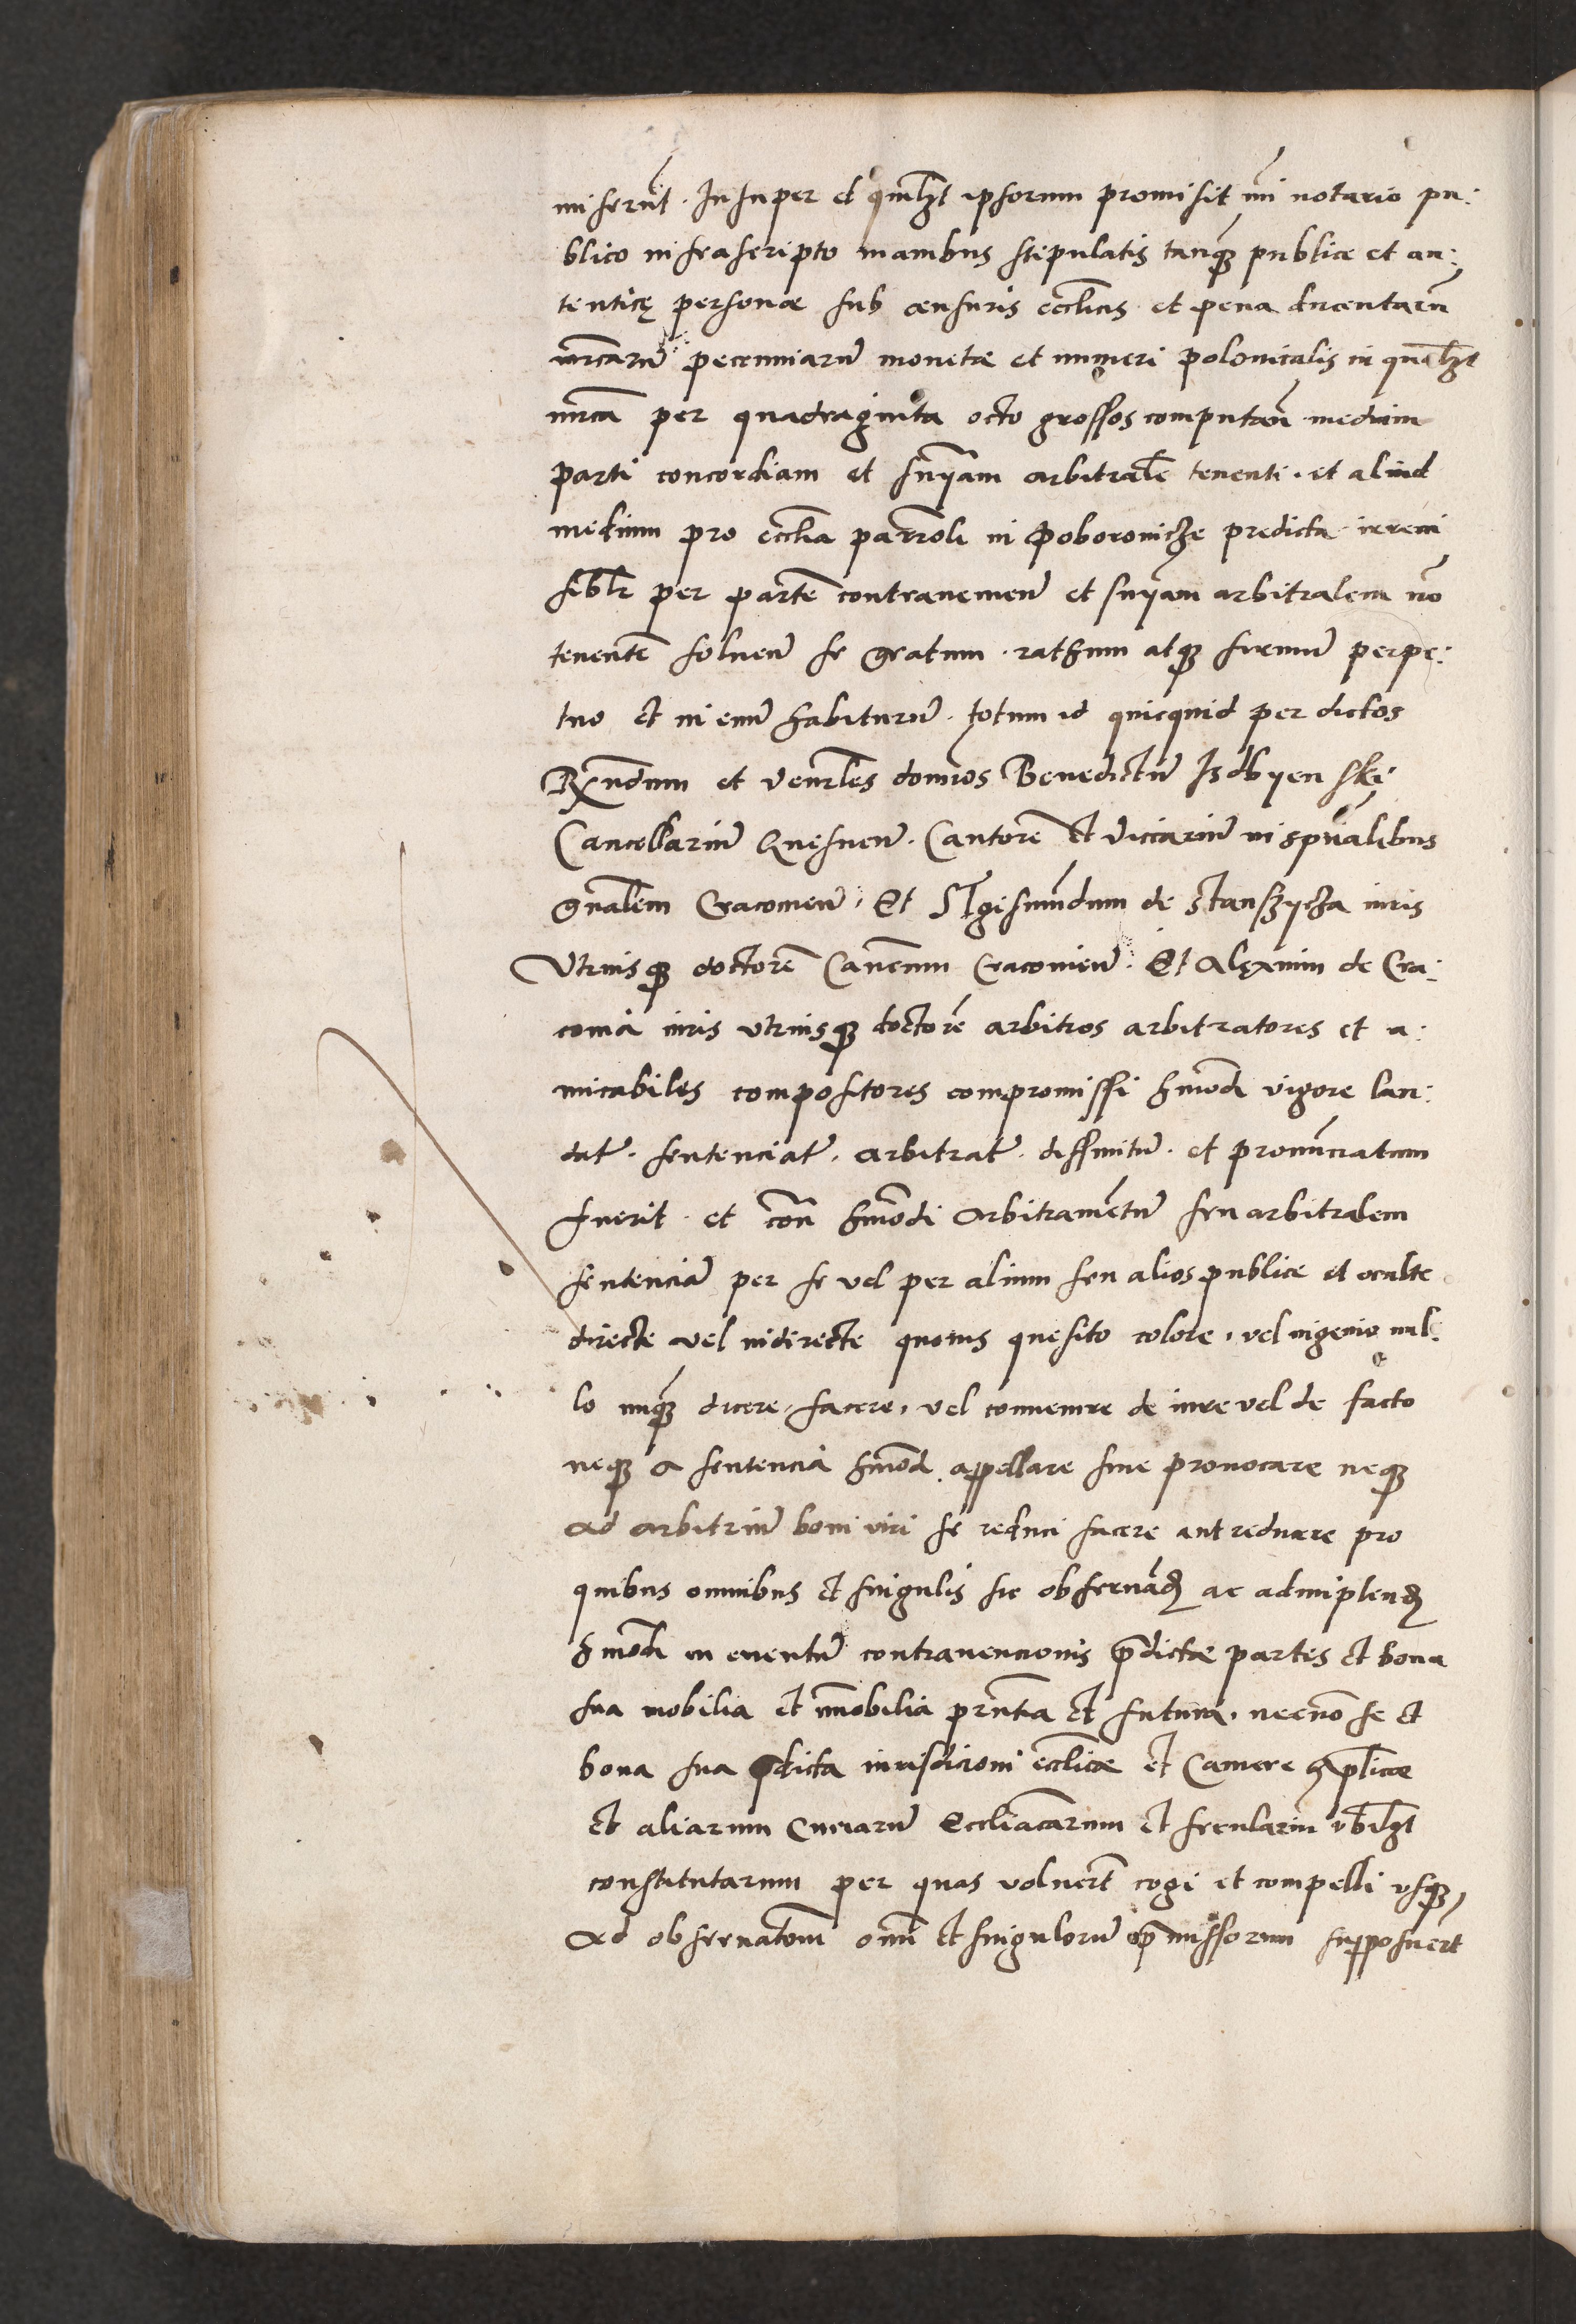 miserūt. Insuper et quilꝫt ipsorum promisit mī notario pu:
blico infrascripto manibus stipulatis tanq̄ꝫ publice et au:
tenticę personae sub censuris eccliīs et pena ducentarū
mrcarū pecunniarū monetae et numeri polonicalis in qualꝫt
mrca per quadraginta octo grossos computan̄ medium
parti concordiam et snīam arbitralē tenenti. et aliud
medium pro ecclīa parroli in Poboroviche predicta irremi
siblr per partē contravenien̄ et snīam arbitralem nō
tenentē solven̄ se gratum. rathum atqꝫ firmū perpe:
tuo et in evū habiturū. totum id quicquid per dictos
Rx̄ndum et venrles domīos Benedictū Isdbyenski
Cancellariū Gnesnen̄. Cantorē et vicariū in spūalibus
gnālem Cracovien̄. Et Sigismūdum de Stanszycza iuris
Utriusqꝫ doctorē Canonicum Cracovien̄. Et Alexium de Cra:
covia iuris utriusqꝫ doctorē arbitros arbitratores et a:
micabiles compositores compromissi hmōdi vigore lau:
datū. sentenciatū. arbitratū. diffinitū. et pronunciatum
fuerit. et con̄ hmōdi arbitramētū seu arbitralem
sentenciā per se vel per alium seu alios publice et oculte
directe vel indirecte quovis quesito colore, vel ingenio nul:
lo unq̄ꝫ dicere, facere, vel convenire de iure vel de facto
neqꝫ a sentencia hmōdi appellare sive provocare neqꝫ
ad arbitriū boni viri se reduci facere aut reducere pro
quibus omnibus et singulis sic observād ac adimplend
hmōdi in eventū contravencionis p̄dictae partes et bona
sua mobilia et immobilia prn̄tia et futura, necnō se et
bona sua p̄dicta iurisdicioni eccliīcae et Camere Aplicae
et aliarum Curiarū Eccliāticarum et seculariū ubilꝫt
constitutarum per quas voluert̄ cogi et compelli usqꝫ
ad observatōnē oīm et singulorū p̄missorum supposuert̄